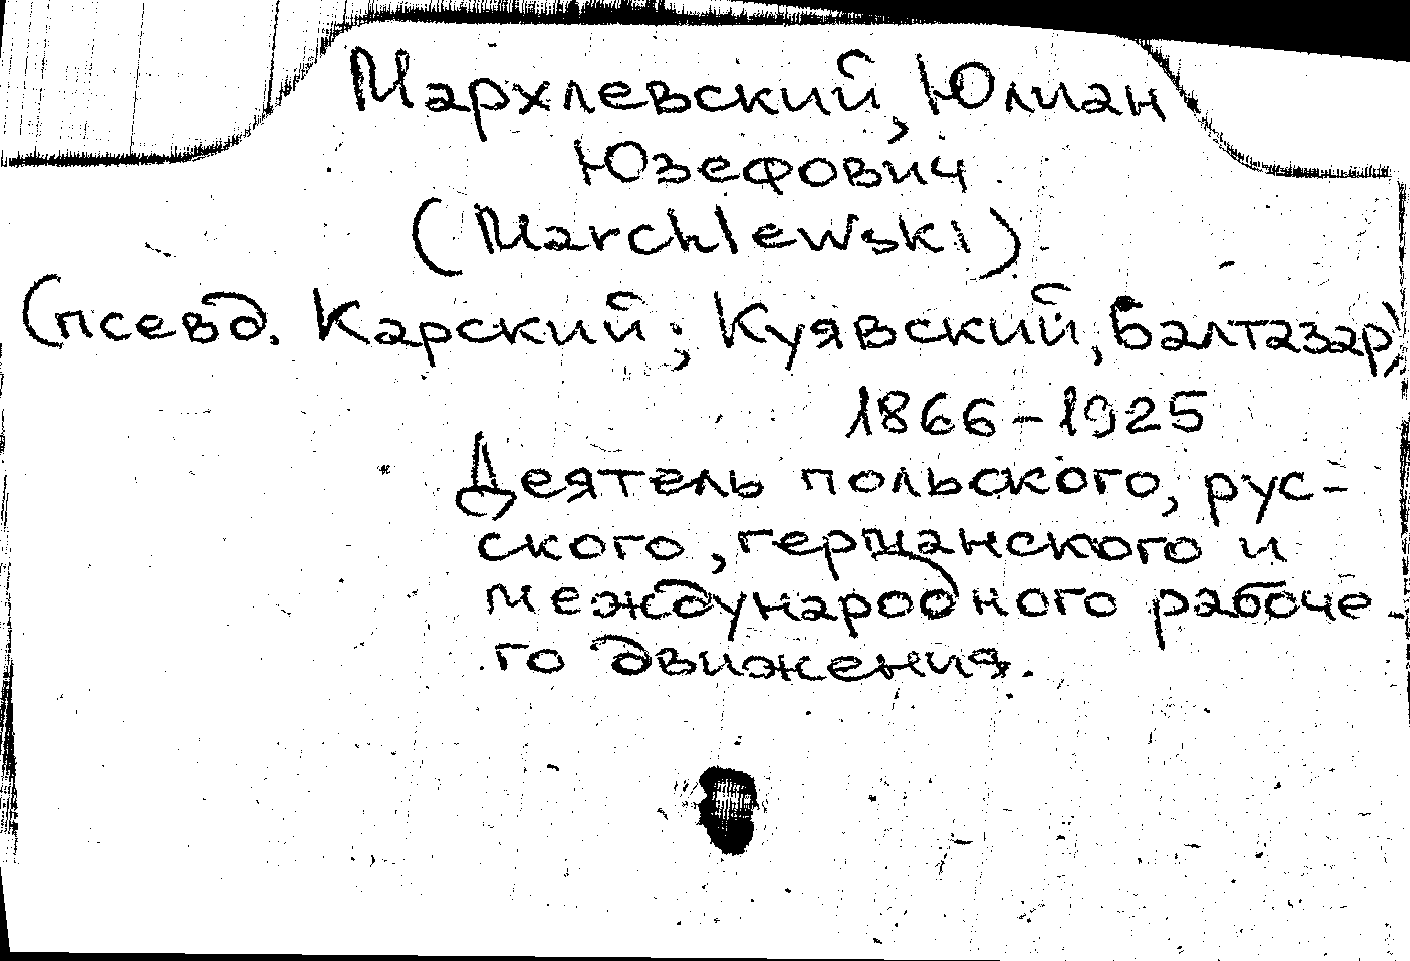 Мархлевский, Юлиан
Юзефович
(Marchlewski)
(псевд. Карский; Куявский, Балтазар)
1866-1925
Деятель польского, рус-
ского, германского и
международного рабоче-
го движения.